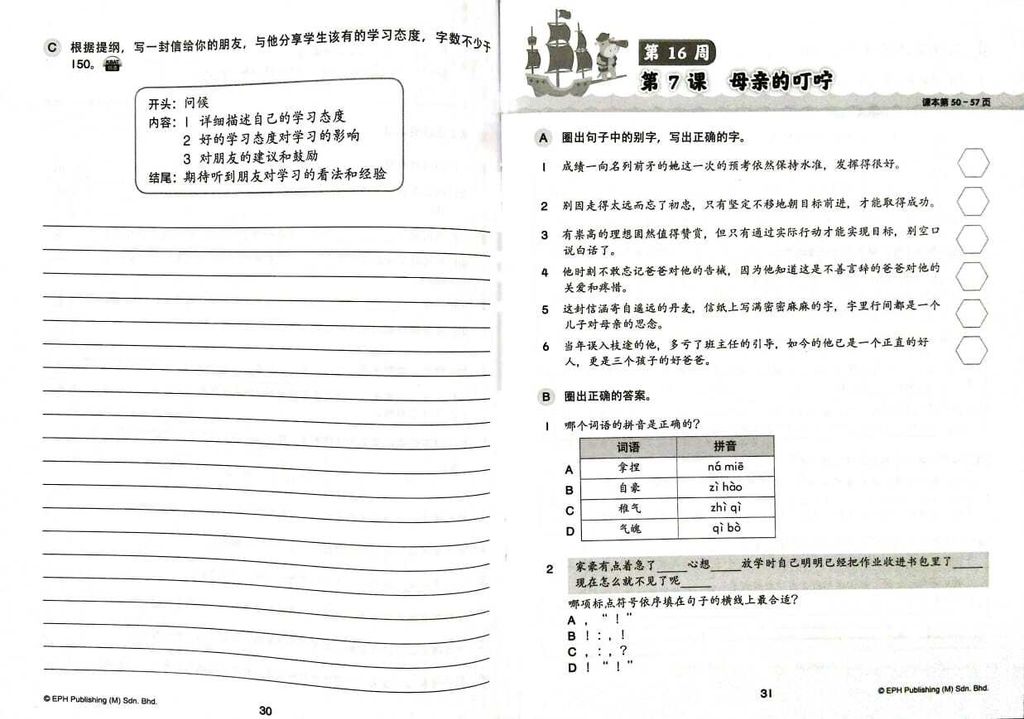 C 根据提纲，写一封信给你的朋友，与他分享学生该有的学习态度，字数不少于
150。
开头：问候
内容：1 详细描述自己的学习态度
2 好的学习态度对学习的影响
3 对朋友的建议和鼓励
结尾：期待听到朋友对学习的看法和经验
© EPH Publishing (M) Sdn. Bhd.
30
第 16 周
第 7 课 母亲的叮咛
课本第 50 – 57 页
A 圈出句子中的别字，写出正确的字。
1 成绩一向名列前矛的她这一次的预考依然保持水准，发挥得很好。
2 别因走得太远而忘了初忠，只有坚定不移地朝目标前进，才能取得成功。
3 有祟高的理想固然值得赞赏，但只有通过实际行动才能实现目标，别空口
说白话了。
4 他时刻不敢忘记爸爸对他的告械，因为他知道这是不善言辞的爸爸对他的
关爱和疼惜。
5 这封信涵寄自遥远的丹麦，信纸上写满密密麻麻的字，字里行间都是一个
儿子对母亲的思念。
6 当年误入枝途的他，多亏了班主任的引导，如今的他已是一个正直的好
人，更是三个孩子的好爸爸。
B 圈出正确的答案。
1 哪个词语的拼音是正确的？
词语 拼音
A 拿捏 ná miē
B 自豪 zì hào
C 稚气 zhì qì
D 气魄 qì bò
2 家豪有点着急了____心想____放学时自己明明已经把作业收进书包里了____
现在怎么就不见了呢____
哪项标点符号依序填在句子的横线上最合适？
A ，“！”
B ！：，！
C ，：，？
D ！“！”
31
© EPH Publishing (M) Sdn. Bhd.